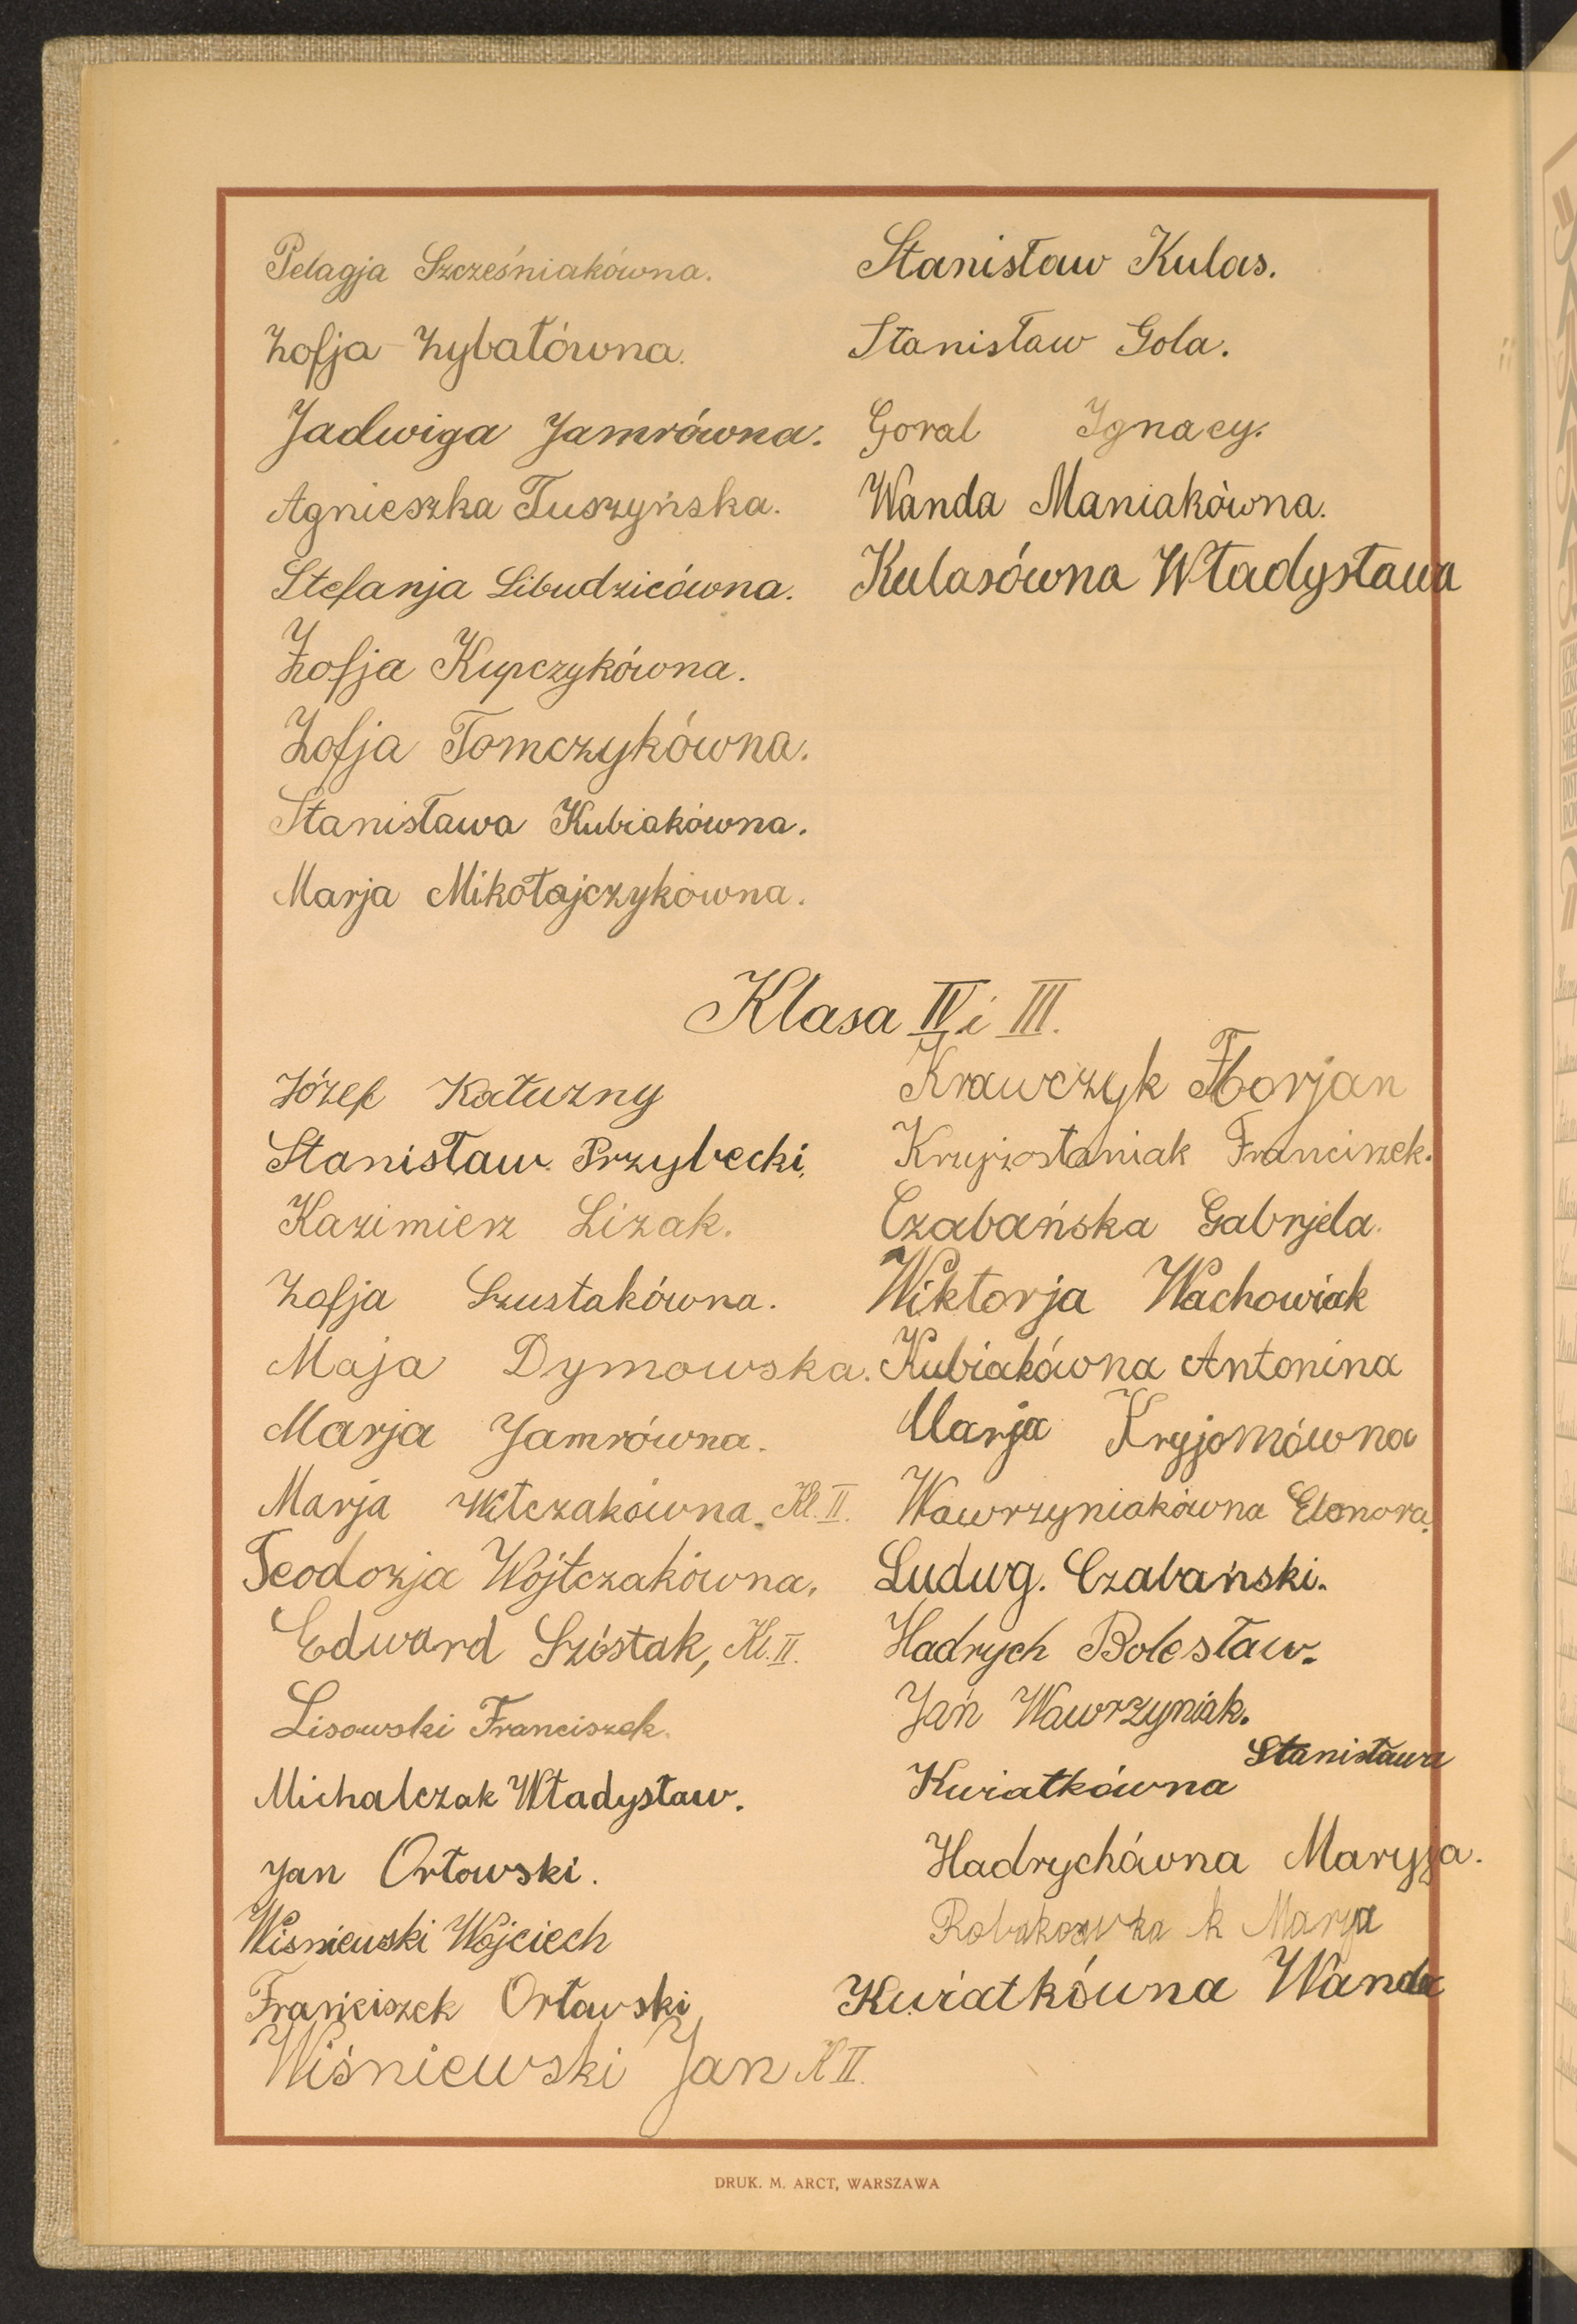 Pelagja Szcześniakówna.
Zofja Zybałówna.
Jadwiga Jamrówna.
Agnieszka Tuszyńska.
Stefanja Libudzicówna.
Zofja Kupczykówna.
Zofja Tomczykówna.
Stanisława Kubiakówna.
Marja Mikołajczykówna.
Stanisław Kulas.
Stanisław Gola.
Goral Ignacy.
Wanda Maniakówna.
Kulasówna Władysława
Klasa IV i III.
Józef Kałuzny
Stanisław Przybecki.
Kazimierz Lizak.
Zofja Szustakówna.
Maja Dymowska.
Marja Jamrówna.
Marja Witczakówna. Kl. II.
Teodozja Wójtczakówna.
Edward Szóstak, Kl. II.
Lisowski Franciszek.
Michalczak Władysław.
Jan Orłowski.
Wisniewski Wojciech
Franciszek Orławski
Wiśniewski Jan Kl II.
Krawczyk Florjan
Franciszek.
Czabańska Gabrjela.
Wiktorja Wachowiak
Kubiakówna Antonina
Marja Kryjomówna
Wawrzyniakówna Elenora.
Ludwg. Czabański.
Hadrych Bolesław.
Jań Wawrzyniak.
Kwiatkówna Stanisława
Hadrychówna Maryja.
Marja
Kwiatkówna Wanda
DRUK. M. ARCT, WARSZAWA